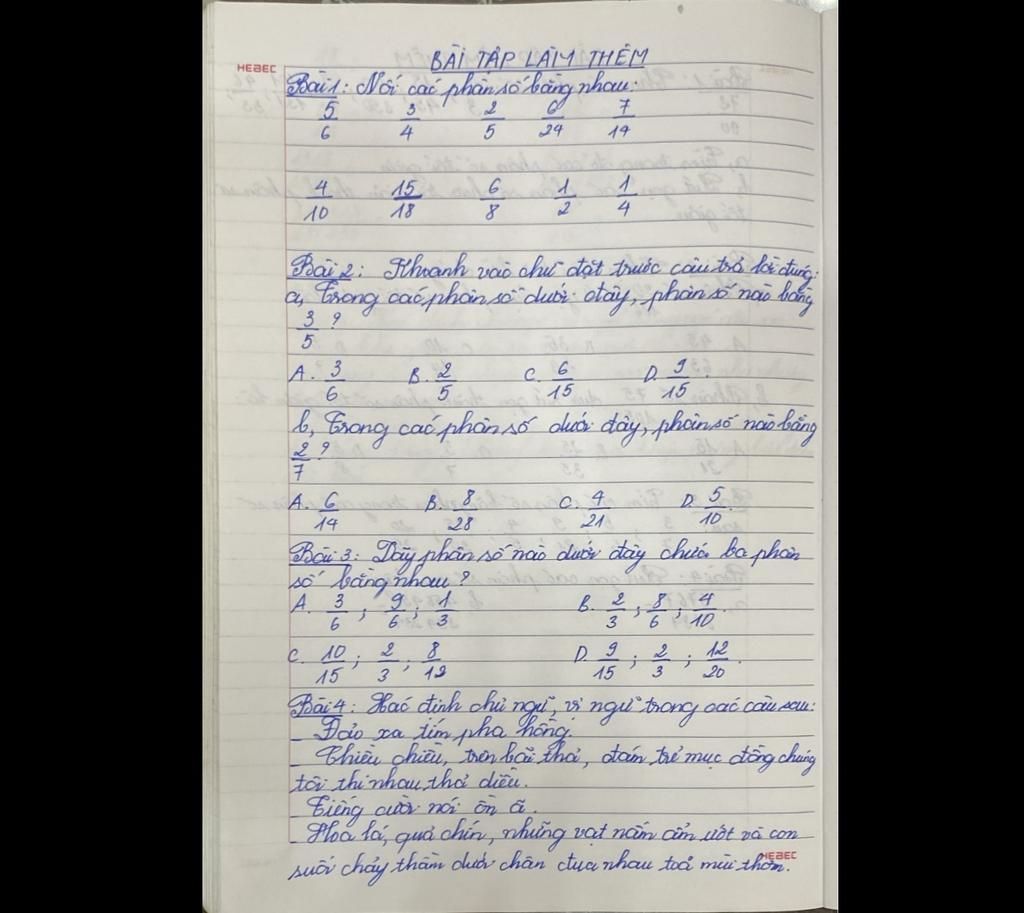 BÀI TẬP LÀM THÊM
HEBEC
Bài 1: Nối các phân số bằng nhau:
5/6 3/4 2/5 6/24 7/14
4/10 15/18 6/8 1/2 1/4
Bài 2: Khoanh vào chữ đặt trước câu trả lời đúng:
a, Trong các phân số dưới đây, phân số nào bằng
3/5?
A. 3/6 B. 2/5 C. 6/15 D. 9/15.
b, Trong các phân số dưới đây, phân số nào bằng
2/7?
A. 6/14 B. 8/28 C. 4/21 D. 5/10.
Bài 3: Dãy phân số nào dưới đây chứa ba phân
số bằng nhau?
A. 3/6; 9/6; 1/3 B. 2/3; 8/6; 4/10.
C. 10/15; 2/3; 8/12 D. 9/15; 2/3; 12/20.
Bài 4: Xác định chủ ngữ, vị ngữ trong các câu sau:
- Đảo xa tím pha hồng.
- Chiều chiều, trên bãi thả, đám trẻ mục đồng chúng
tôi thi nhau thả diều.
- Tiếng cười nói ồn ã.
- Hoa lá, quả chín, những vạt nấm ẩm ướt và con
suối chảy thầm dưới chân đua nhau toả mùi thơm.
HEBEC